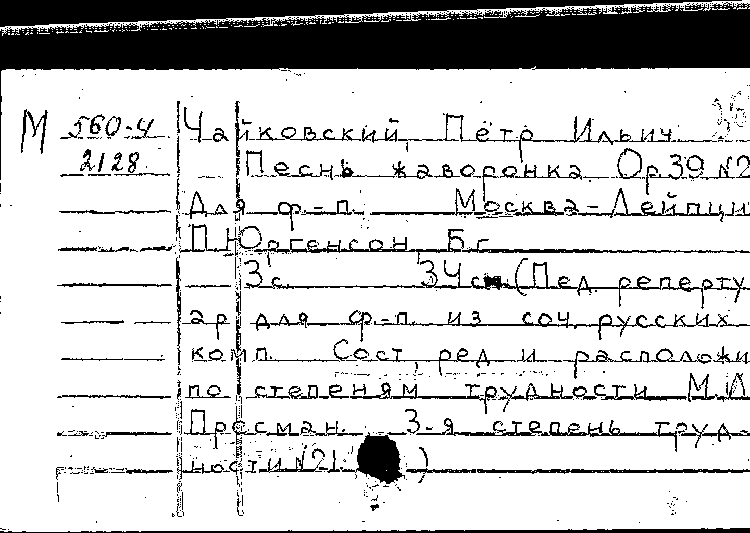 М 560-4 Чайковский, Пётр Ильич
2128 Песнь жаворонка Op 39 №2
Для ф.-п. Москва-Лейпци
П. Юргенсон Б.г.
3с. 34см. (Пед. реперту
ар для ф.-п. из соч. русских
комп. Сост., ред и расположи
по степеням трудности М.И.
Пресман. 3-я степень труд-
ности №21. )